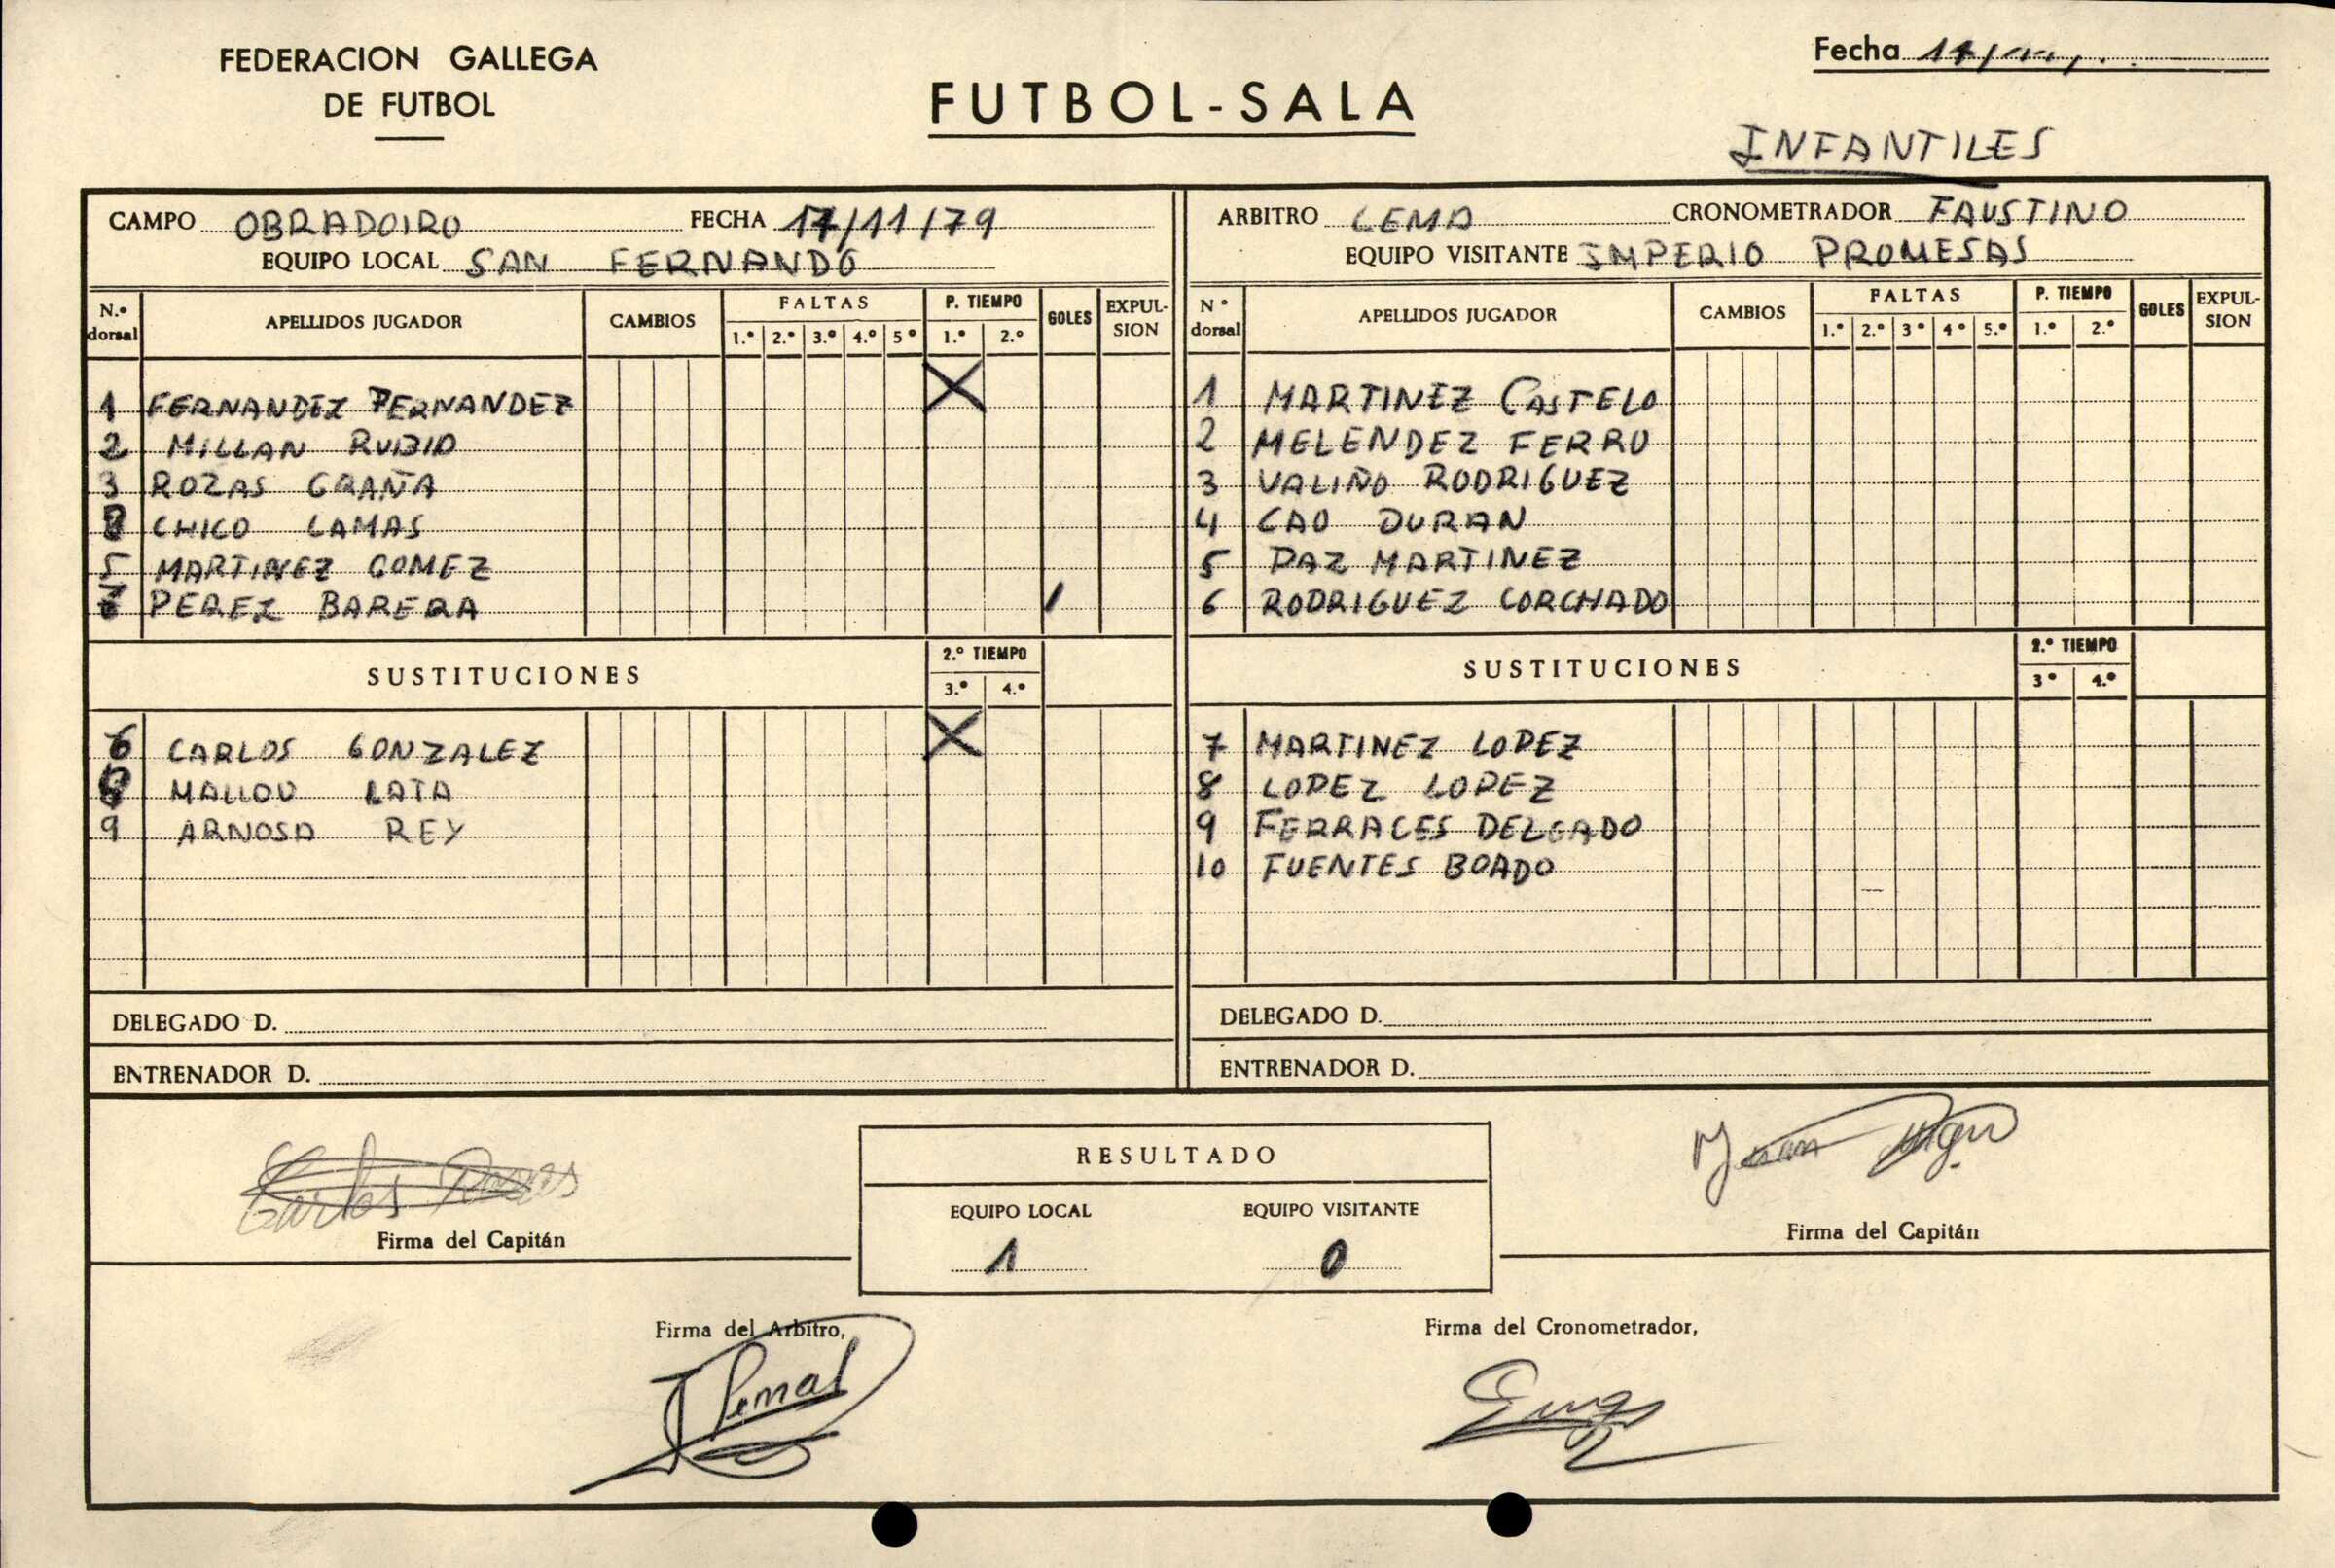 FEDERACION GALLEGA
DE FUTBOL
FUTBOL-SALA
Fecha
INFANTILES
CAMPO OBRADOIRO FECHA 17/11/79
EQUIPO LOCAL SAN FERNANDO
N.º dorsal APELLIDOS JUGADOR CAMBIOS FALTAS 1.º 2.º 3.º 4.º 5º P. TIEMPO 1.º 2.º GOLES EXPUL-SION
1 FERNANDEZ FERNANDEZ X
2 MILLAN RUBIO
3 ROZAS GRAÑA
8 CHICO LAMAS
5 MARTINEZ GOMEZ
7 PEREZ BARERA /
SUSTITUCIONES 2.º TIEMPO 3.º 4.º
6 CARLOS GONZALEZ X
MALLOU LATA
9 ARNOSA REY
DELEGADO D.
ENTRENADOR D.
ARBITRO LEMA CRONOMETRADOR FAUSTINO
EQUIPO VISITANTE IMPERIO PROMESAS
Nº dorsal APELLIDOS JUGADOR CAMBIOS FALTAS 1.º 2.º 3º 4º 5.º P. TIEMPO 1.º 2.º GOLES EXPUL-SION
1 MARTINEZ CASTELO
2 MELENDEZ FERRO
3 VALIÑO RODRIGUEZ
4 CAO DURAN
5 PAZ MARTINEZ
6 RODRIGUEZ CORCHADO
SUSTITUCIONES 2.º TIEMPO 3º 4.º
7 MARTINEZ LOPEZ
8 LOPEZ LOPEZ
9 FERRACES DELGADO
10 FUENTES BOADO
DELEGADO D.
ENTRENADOR D.
Firma del Capitán
RESULTADO
EQUIPO LOCAL EQUIPO VISITANTE
1 0
Firma del Capitán
Firma del Arbitro,
Firma del Cronometrador,